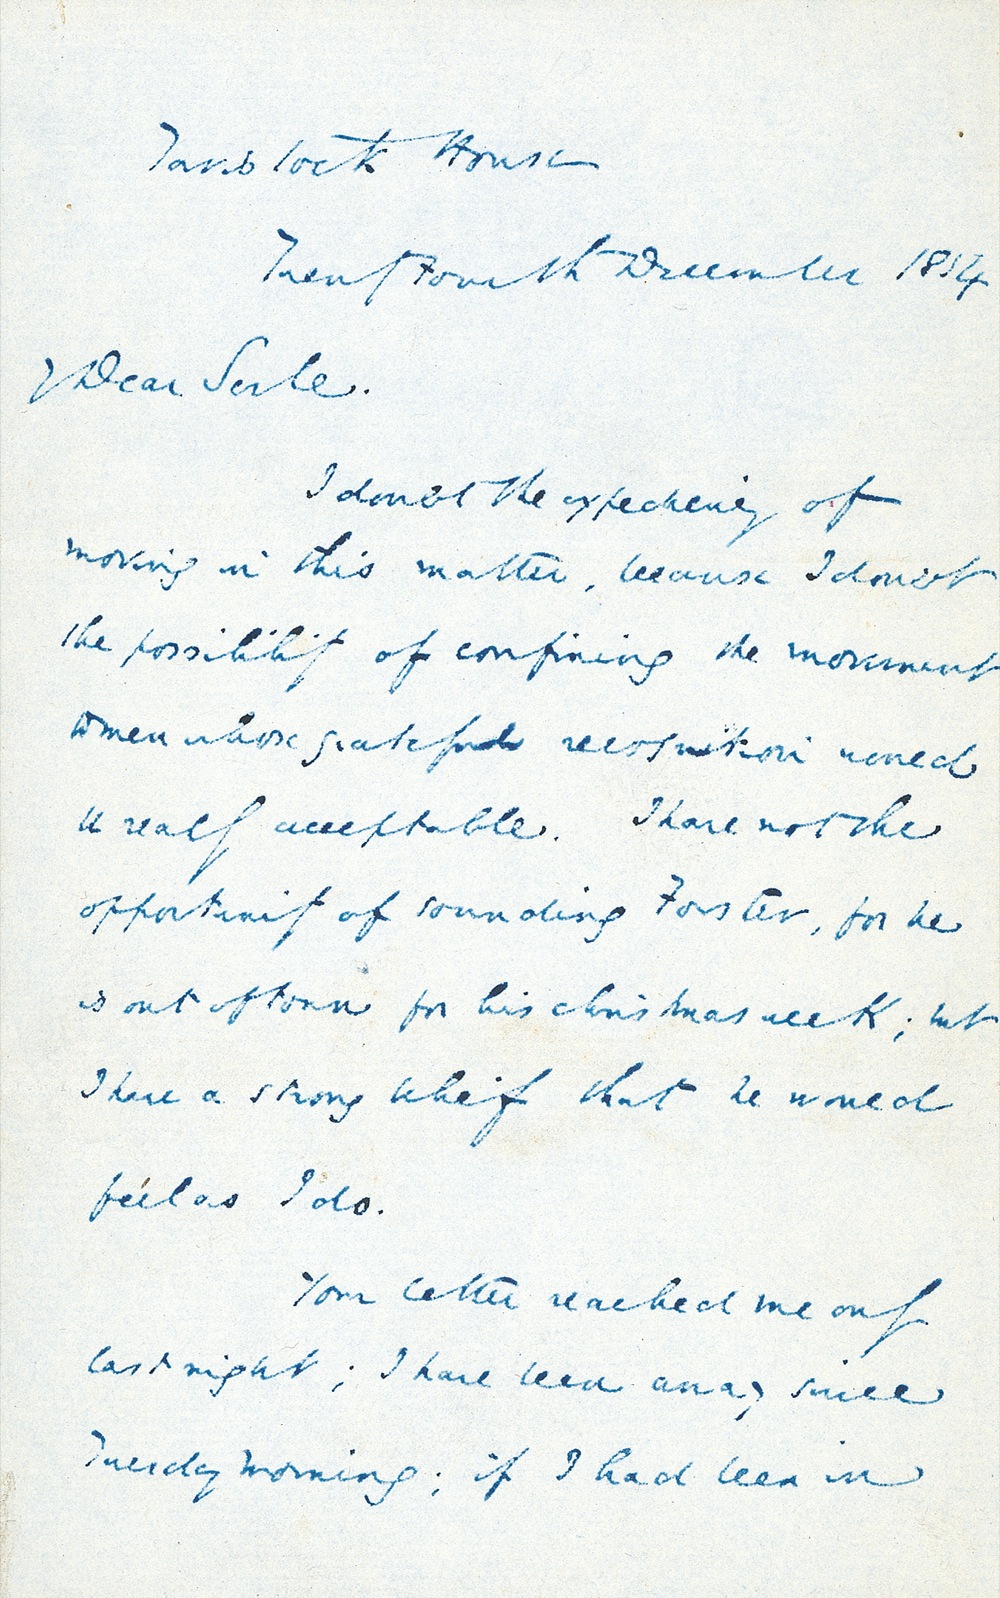 Tavistock House
Twenty Fourth December 1854
My Dear Serle.
I doubt the expediency of
moving in this matter, because I doubt
the possibility of confining the movement
to men whose grateful recognition would
be really acceptable. I have not the
opportunity of sounding Forster, for he
is out of town for his Christmas week; but
I have a strong belief that he would
feel as I do.
Your letter reached me only
last night; I have been away since
Tuesday Morning; if I had been in